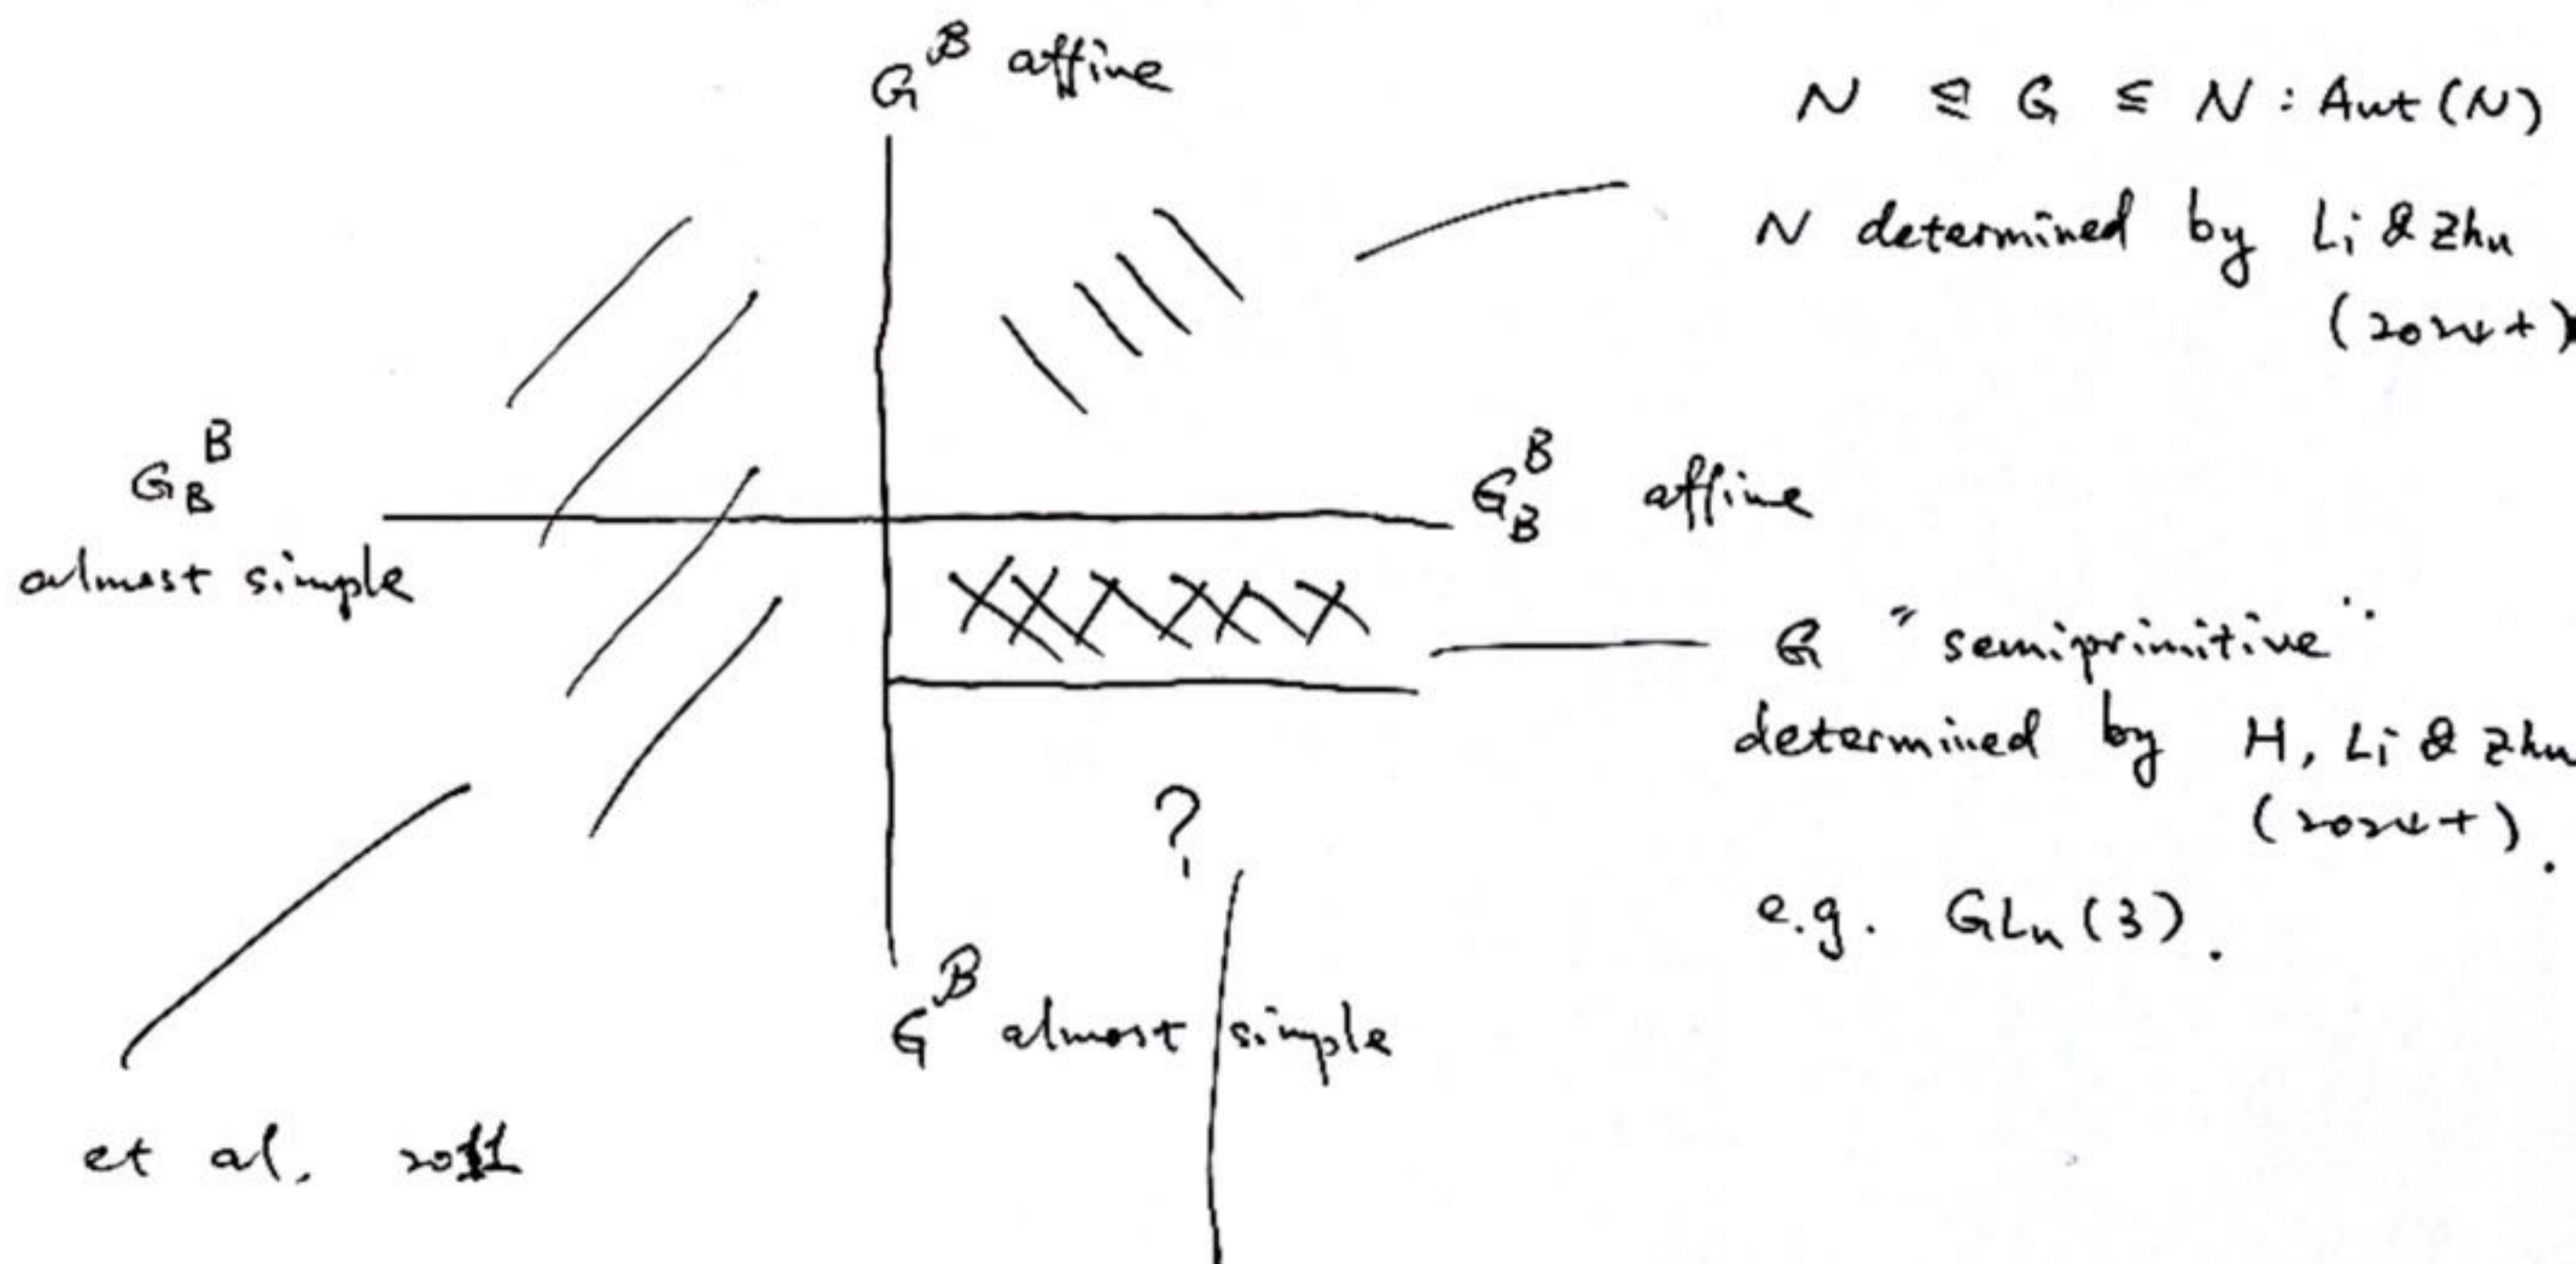 G^𝓑 affine
N ⊴ G ≤ N : Aut(N)
N determined by Li & Zhu
(2024+)
G_B^B
almost simple
G_B^B affine
G "semiprimitive"
determined by H, Li & Zhu
(2024+).
e.g. GLn(3).
?
G^𝓑 almost simple
et al. 2011